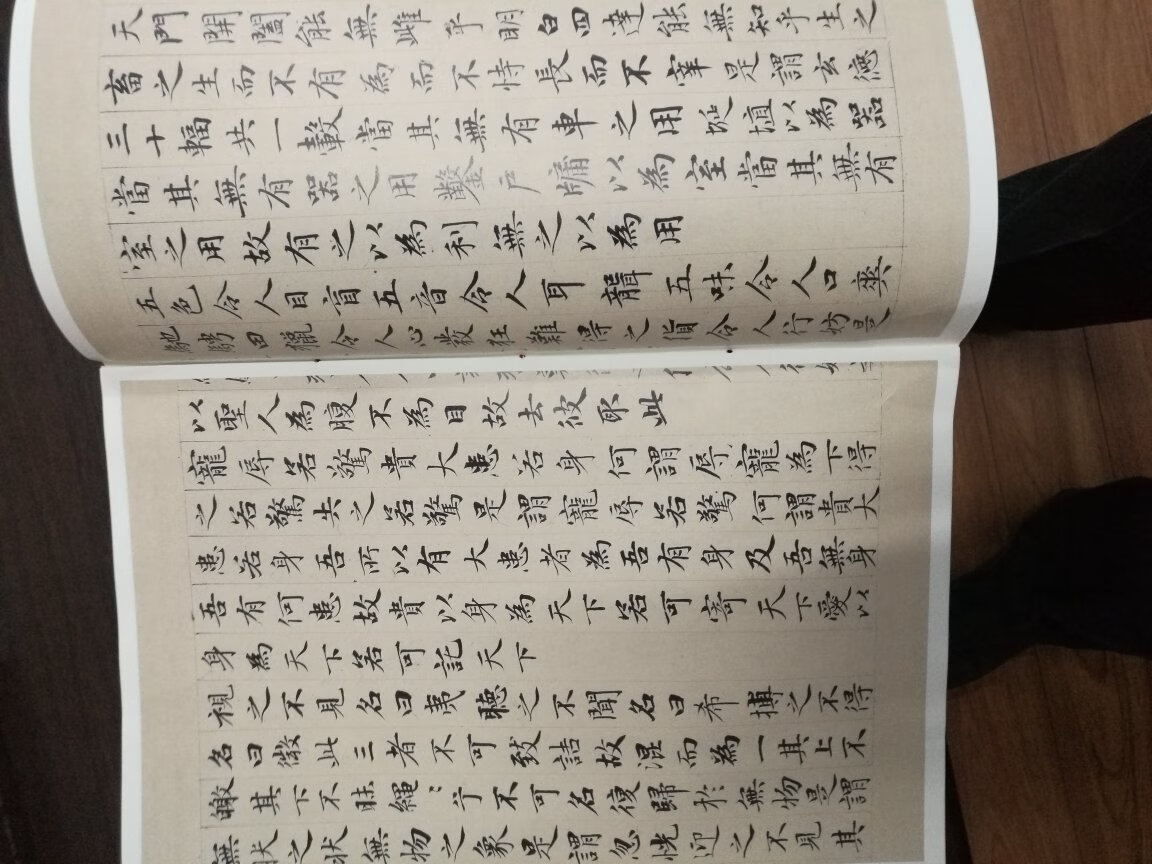 天門開闔能無雌乎明白四達能無知乎生之
畜之生而不有為而不恃長而不宰是謂玄德
三十輻共一轂當其無有車之用埏埴以為器
當其無有器之用鑿戶牖以為室當其無有
室之用故有之以為利無之以為用
五色令人目盲五音令人耳聾五味令人口爽
馳騁田獵令人心發狂難得之貨令人行妨是
以聖人為腹不為目故去彼取此
寵辱若驚貴大患若身何謂辱寵為下得
之若驚失之若驚是謂寵辱若驚何謂貴大
患若身吾所以有大患者為吾有身及吾無身
吾有何患故貴以身為天下若可寄天下愛以
身為天下若可託天下
視之不見名曰夷聽之不聞名曰希搏之不得
名曰微此三者不可致詰故混而為一其上不
皦其下不昧繩〻兮不可名復歸於無物是謂
無狀之狀無物之象是謂忽恍迎之不見其